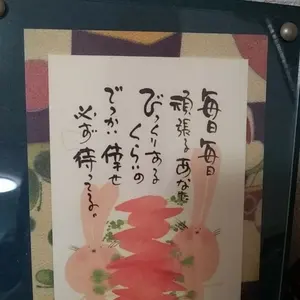 毎日毎日
頑張るあなた
びっくりする
くらいの
でっかい幸せ
必ず待ってるよ